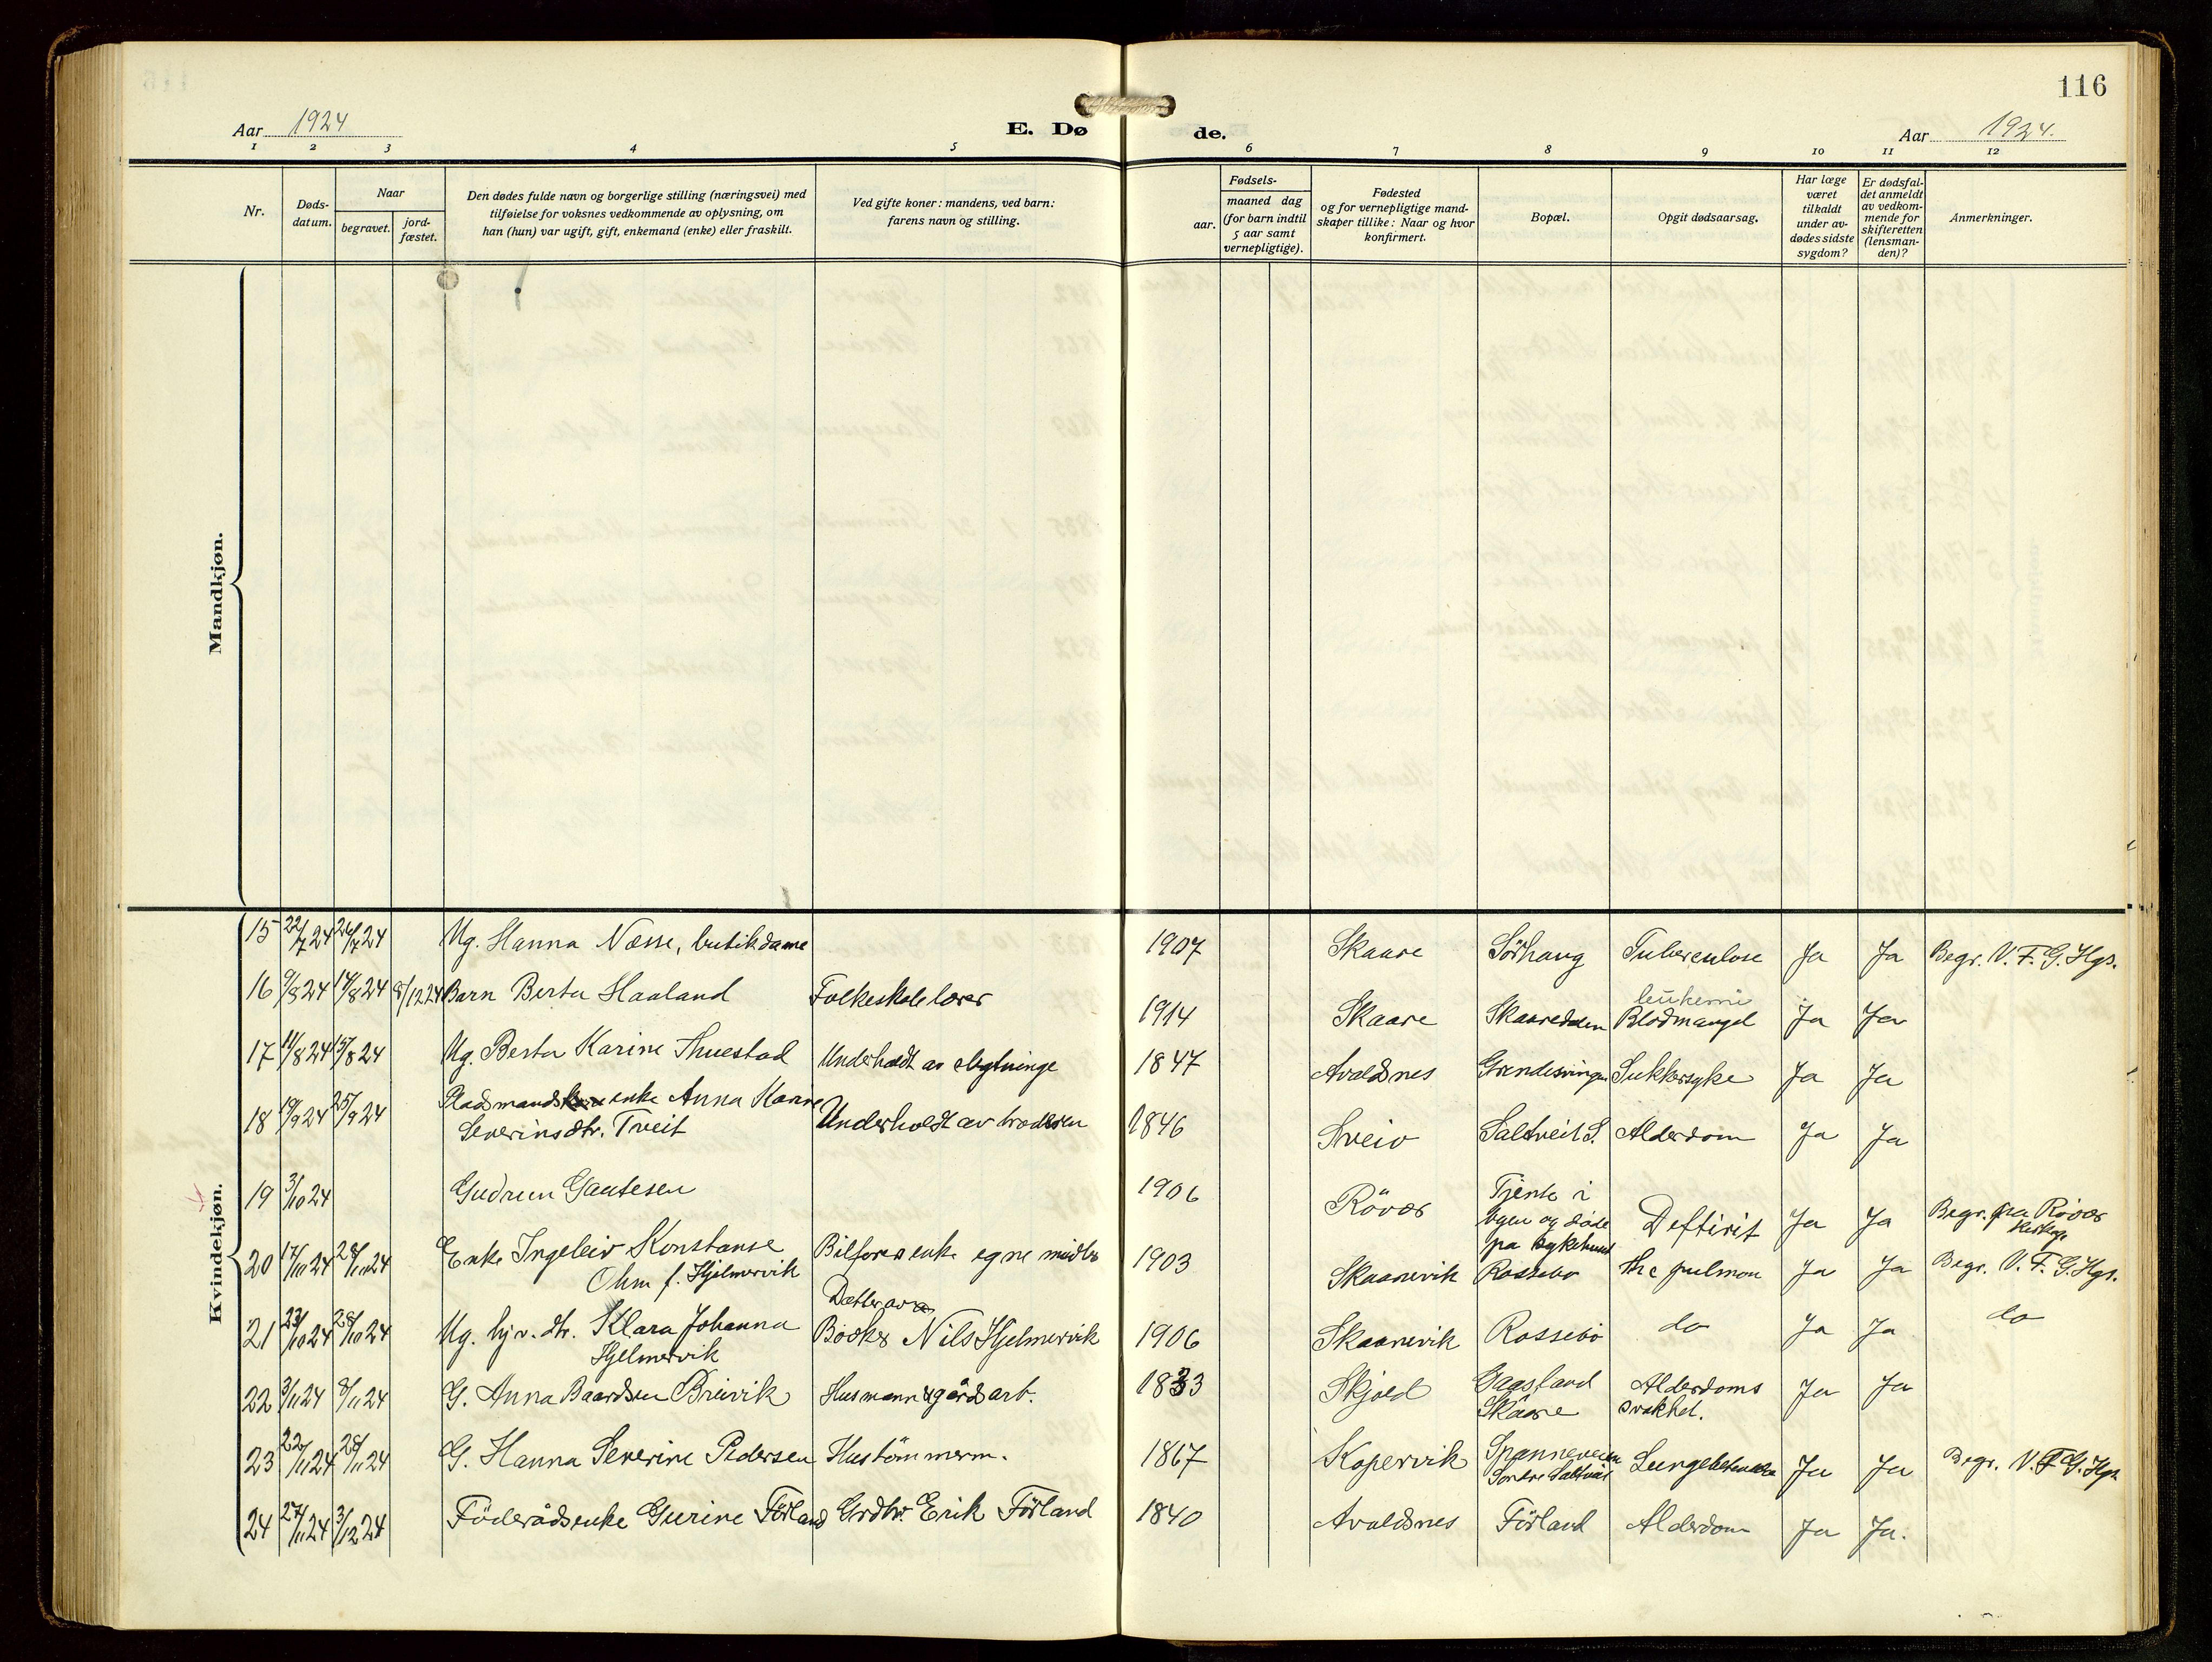 116
Aar 1924
E. Dø
de.
Aar 1924.
1 2 3 4 5 6 7 8 9 10 11 12
Nr.
Døds-
datum.
Naar
begravet.
jord-
fæstet.
Den dødes fulde navn og borgerlige stilling (næringsvei) med
tilføielse for voksnes vedkommende av oplysning, om
han (hun) var ugift, gift, enkemand (enke) eller fraskilt.
Ved gifte koner: mandens, ved barn:
farens navn og stilling.
Fødsels-
aar.
maaned dag
(for barn indtil
5 aar samt
vernepligtige).
Fødested
og for vernepligtige mand-
skaper tillike: Naar og hvor
konfirmert.
Bopæl.
Opgit dødsaarsag.
Har læge
været
tilkaldt
under av-
dødes sidste
sygdom?
Er dødsfal-
det anmeldt
av vedkom-
mende for
skifteretten
(lensman-
den)?
Anmerkninger.
Mandkjøn.
Kvindekjøn.
15 22/7 24 26/7 24 Ug. Hanna Næsse, butikdame 1907 Skaare Sörhaug Tuberculose Ja Ja Begr. V. F. G. Hgs.
16 9/8 24 14/8 24 8/12 24 Barn Berta Haaland Folkeskolelærer 1914 Skaare Skaaredalen leukemi Blodmangel Ja Ja
17 11/8 24 15/8 24 Ug. Berta Karine Thuestad Underholdt av slegtninge 1847 Avaldsnes Grindesvingen Sukkersyke Ja Ja
18 19/9 24 25/9 24 Pladsmands enke Anna Karine
Severinsdtr. Tveit Underholdt av brodersen 1846 Sveio Saltveit S. Alderdom Ja Ja
19 3/10 24 Gudrun Gautesen 1906 Rövær Tjente i
byen og döde
pa sykehuset Deftirit Ja Ja Begr. paa Rövær
kirkeg.
20 17/10 24 28/10 24 Enke Ingeleiv Konstanse
Ohm f. Hjelmervik Bilförer enke egne midler 1903 Skaanevik Rossebö tbc pulmon Ja Ja Begr. V. F. G. Hgs.
21 23/10 24 28/10 24 Ug. hjv. dtr. Klara Johanna
Hjelmervik Datter av
Bödker Nils Hjelmervik 1906 Skaanevik Rossebö do Ja Ja do
22 3/11 24 8/11 24 G. Anna Baardsen Breivik Husmann & gårdsarb. 1833 Skjold Gaasland
Skaare Alderdoms
svakhet. Ja Ja
23 22/11 24 28/11 24 G. Hanna Severine Pedersen Hustömmerm. 1867 Kopervik Spanneveien
Söndre Saltveit Lungebetændelse Ja Ja Begr. V. F. G. Hgs.
24 27/11 24 3/12 24 Föderådsenke Gurine Förland Grdbr. Erik Förland 1840 Avaldsnes Förland Alderdom Ja Ja.